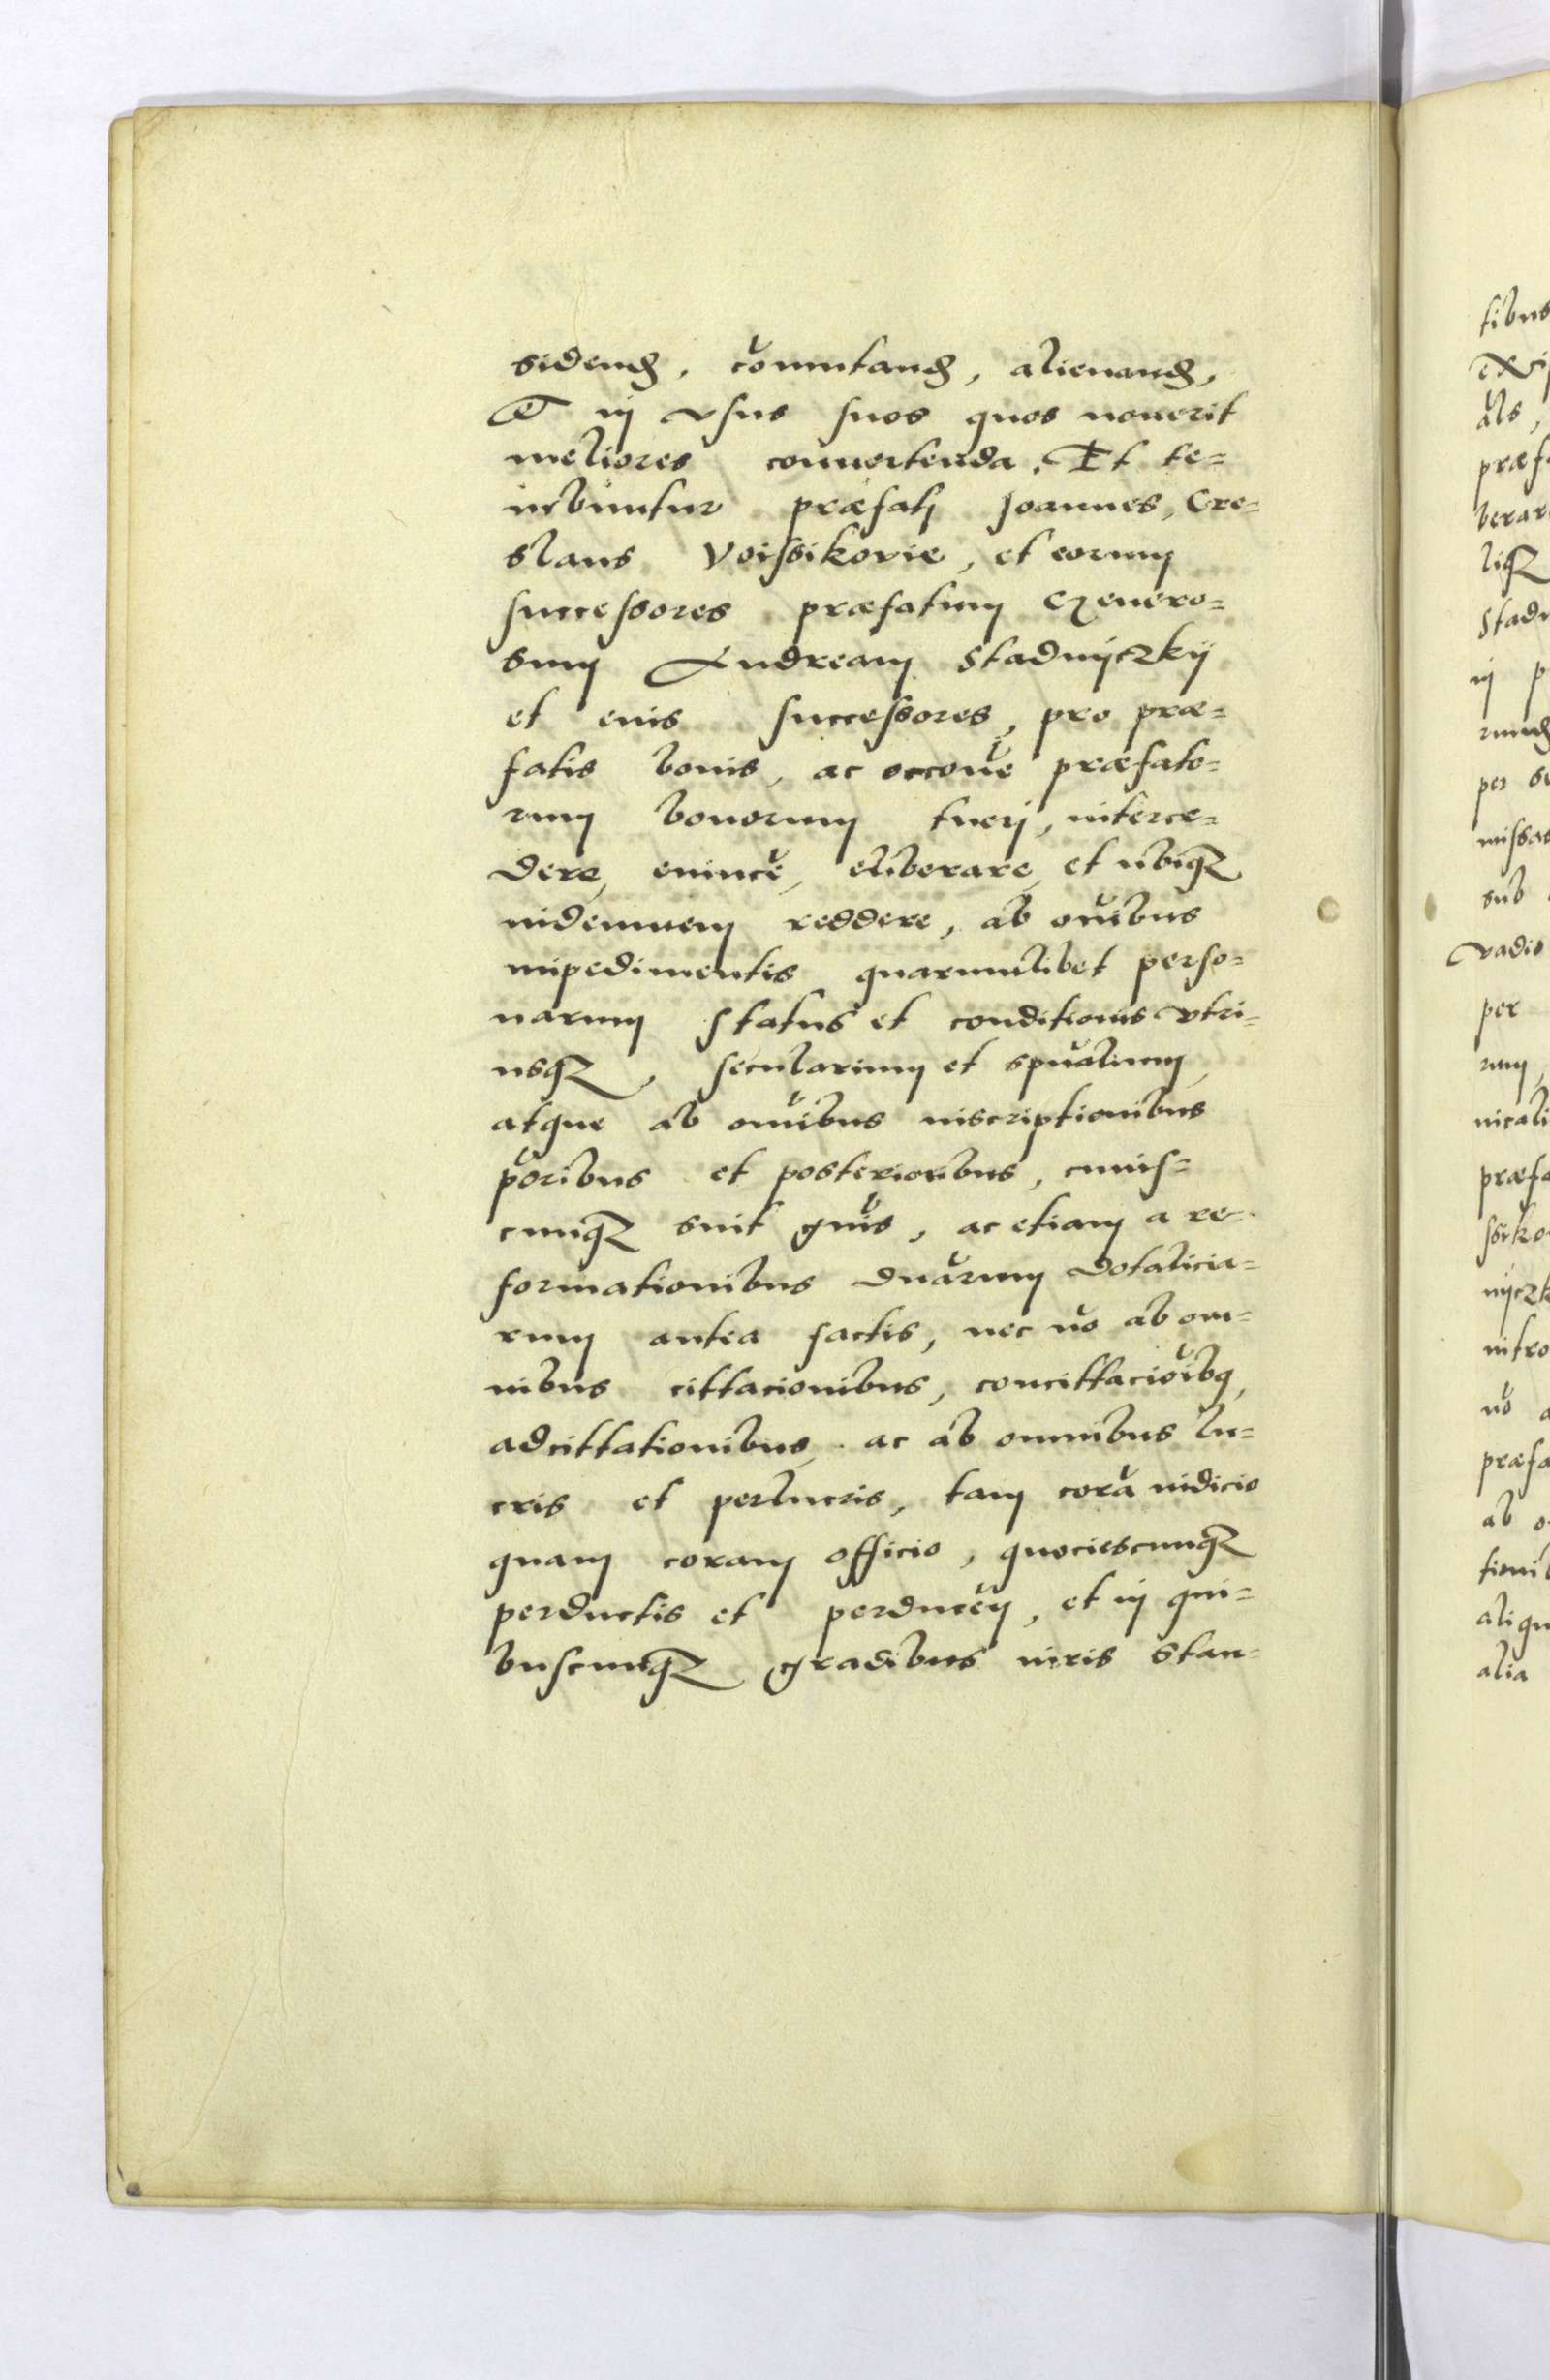 sidend, cõmutand, alienand,
Et in vsus suos quos nouerit
meliores conuertenda. Et te=
nebuntur præfati Joannes, Cre=
slaus Voissikovie, et eorum
successores præfatum Genero=
sum Andream Stadnÿczkÿ
et euis successores, pro præ=
fatis bonis, ac occoñe præfato=
rum bonorum tuerj, interce=
dere, euincẽ, eliberare, et ubiqz
indemnem reddere, ab oñibus
impedimentis quarumlibet perso=
narum status et conditionis vtri=
usqz, secularium et spũalium,
atque ab omñibus inscriptionibus
põribus et posterioribus, cuius=
cunqz sint gñis, ac etiam a re=
formationibus dnãrum dotalicia=
rum antea factis, nec nõ ab om=
nibus cittacionibus, concittaciõibq,
adcittationibus, ac ab omnibus lu=
cris et perlucris, tam corã iudicio
quam coram officio, quociescunqz
perductis et perducẽn, et in qui=
buscunqz gradibus iuris stan=
tibus
als,
præf
berar
liqz
Stadn
in p
per
missas
sub
vadio
per
rum,
præfa
ssiko
nÿczk
intro
nõ a
præfa
ab o
aliqu
alia